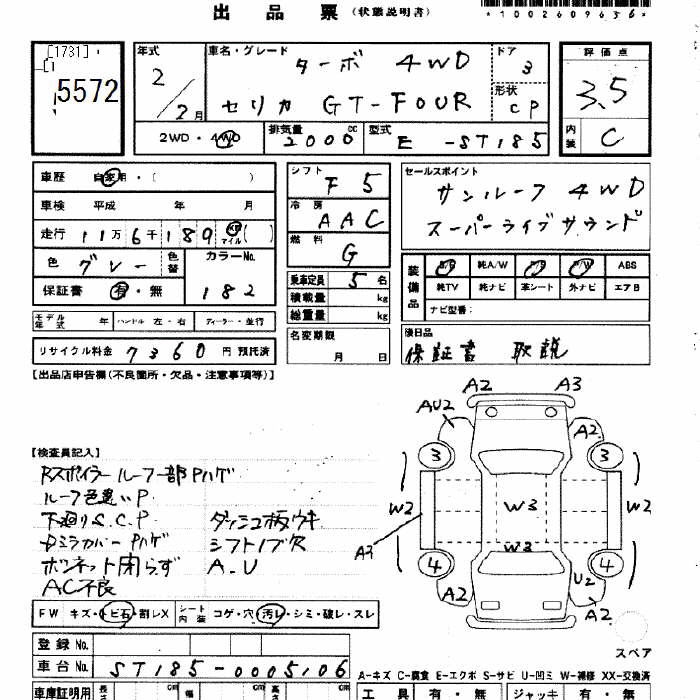 出品票 (状態説明書)
*1002609656*
[1731]
5572
年式 2/2月
車名・グレード ターボ 4WD
セリカ GT-FOUR
ドア 3
形状 CP
評価点 3.5
内装 C
2WD・4WD 排気量 2000 cc 型式 E-ST185
車歴 自家用・( )
車検 平成 年 月
走行 11万6千189 km マイル ( )
色 グレー 色替 カラーNo. 182
保証書 有・無
シフト F5
冷房 AAC
燃料 G
乗車定員 5名
積載量 kg
総重量 kg
セールスポイント
サンルーフ 4WD
スーパーライブサウンド
装備品 P/S 純A/W P/W ABS
純TV 純ナビ 革シート 外ナビ エアB
ナビ型番:
モデル年式 年 ハンドル 左・右 ディーラー・並行
名変期限 月 日
後日品
保証書 取説
リサイクル料金 7360 円 預託済
[出品店申告欄(不良箇所・欠品・注意事項等)]
A2 A3
AU2 A2
3 3
W2 W3 W2
W3
A3
4 4
A2 U2 A2
スペア
[検査員記入]
Rスポイラー ルーフ一部Pハゲ
ルーフ色違いP
下廻りS.C.P ダッシュ板ウキ
ドミラカバー Pハゲ シフトノブ欠
ボンネット閉らず A.U
AC不良
FW キズ・トビ石・割レX シート内装 コゲ・穴・汚レ・シミ・破レ・スレ
登録 No.
車台 No. ST185-0005106
A-キズ C-腐食 E-エクボ S-サビ U-凹ミ W-補修 XX-交換済
車庫証明用 長さ cm 幅 cm 高さ cm
工具 有・無 ジャッキ 有・無